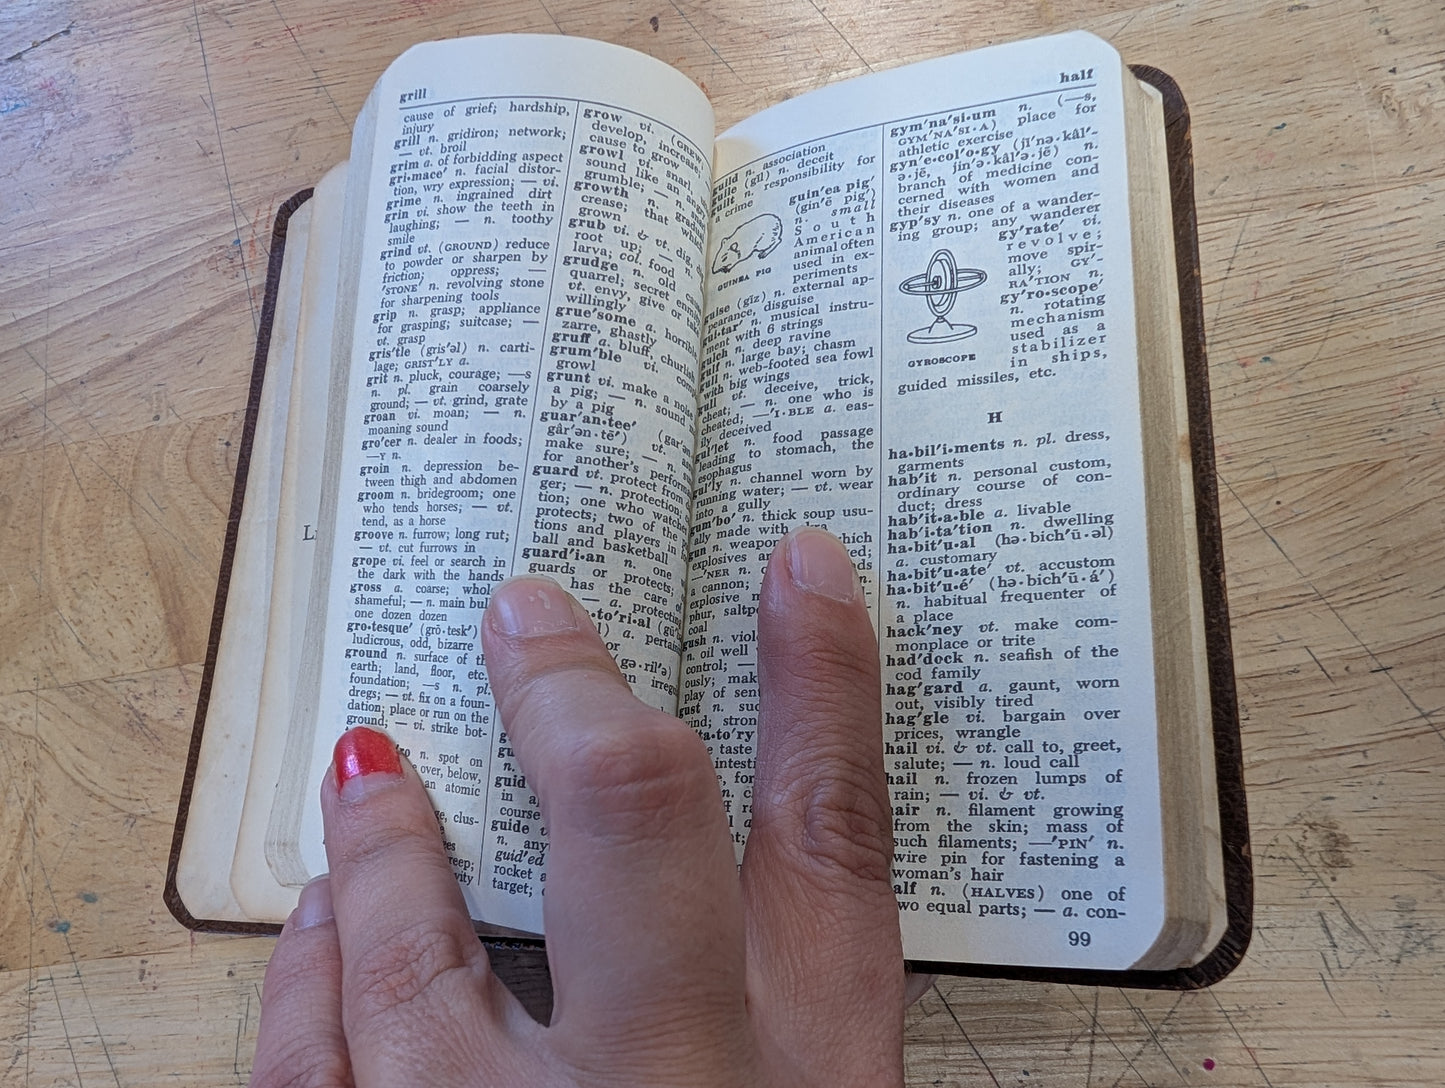 grill
cause of grief; hardship,
injury
grill n. gridiron; network;
— vt. broil
grim a. of forbidding aspect
gri•mace′ n. facial distor-
tion, wry expression; — vi.
grime n. ingrained dirt
grin vi. show the teeth in
laughing; — n. toothy
smile
grind vt. (GROUND) reduce
to powder or sharpen by
friction; oppress; —
′STONE′ n. revolving stone
for sharpening tools
grip n. grasp; appliance
for grasping; suitcase; —
vt. grasp
gris′tle (gris′əl) n. carti-
lage; GRIST′LY a.
grit n. pluck, courage; —s
n. pl. grain coarsely
ground; — vt. grind, grate
groan vi. moan; — n.
moaning sound
gro′cer n. dealer in foods;
—Y n.
groin n. depression be-
tween thigh and abdomen
groom n. bridegroom; one
who tends horses; — vt.
tend, as a horse
groove n. furrow; long rut;
— vt. cut furrows in
grope vi. feel or search in
the dark with the hands
gross a. coarse; whole
shameful; — n. main
one dozen dozen
gro•tesque′ (grō•tesk′)
ludicrous, odd, bizarre
ground n. surface of
earth; land, floor, etc.
foundation; —s n. pl.
dregs; — vt. fix on a foun-
dation; place or run on the
ground; — vi. strike bot-
n. spot on
over, below,
an atomic
clus-
grow vi. (GREW,
develop, increase,
cause to grow
growl vi. snarl,
sound like an
grumble; — n.
growth n.
crease; that
grown
grub vi. & vt. dig,
root up; — n.
larva; col. food
grudge n. old
quarrel; secret
vt. envy, give or
willingly
grue′some a.
zarre, ghastly, horrible
gruff a. bluff, churlish
grum′ble vi.
growl
grunt vi. make a noise
a pig; — n. sound
by a pig
guar′an•tee′
gâr′ən•tē′) vt.
make sure; — n.
for another's
guard vt. protect from
ger; — n. protection;
tion; one who
protects; two of the
tions and players in
ball and basketball
guard′i•an n. one
guards or protects;
has the care of
— a. protecting
a.
(gə•ril′ə)
guid
in
course
guide
n. any
guid′ed
rocket
target;
guild n. association
guile (gīl) n. deceit
guilt n. responsibility for
a crime
guin′ea pig′
(gin′ē pig′)
n. small
South
American
animal often
used in ex-
periments
GUINEA PIG
guise (gīz) n. external ap-
pearance, disguise
gui•tar′ n. musical instru-
ment with 6 strings
gulch n. deep ravine
gulf n. large bay; chasm
gull n. web-footed sea fowl
with big wings
gull vt. deceive, trick,
cheat; — n. one who is
cheated; —′I•BLE a. eas-
ily deceived
gul′let n. food passage
leading to stomach, the
esophagus
gul′ly n. channel worn by
running water; — vt. wear
into a gully
gum′bo′ n. thick soup usu-
ally made with
gun n. weapon
explosives
—′NER n.
a cannon;
explosive
phur,
coal
gush n.
n. oil well
control; —
ously;
play of
gust n.
wind;
taste
half
gym′na′si•um n. (—s,
GYM′NA′SI•A) place for
athletic exercise
gyn′e•col′o•gy (jī′nə•kâl′-
ə•jē, jin′ə•kâl′ə•jē) n.
branch of medicine con-
cerned with women and
their diseases
gyp′sy n. one of a wander-
ing group; any wanderer
gy′rate′ vi.
revolve;
move spir-
ally; GY′-
RA′TION n.
gy′ro•scope′
n. rotating
mechanism
used as a
stabilizer
in ships,
guided missiles, etc.
GYROSCOPE
H
ha•bil′i•ments n. pl. dress,
garments
hab′it n. personal custom,
ordinary course of con-
duct; dress
hab′it•a•ble a. livable
hab′i•ta′tion n. dwelling
ha•bit′u•al (hə•bich′ū•əl)
a. customary
ha•bit′u•ate′ vt. accustom
ha•bit′u•é′ (hə•bich′ū•á′)
n. habitual frequenter of
a place
hack′ney vt. make com-
monplace or trite
had′dock n. seafish of the
cod family
hag′gard a. gaunt, worn
out, visibly tired
hag′gle vi. bargain over
prices, wrangle
hail vi. & vt. call to, greet,
salute; — n. loud call
hail n. frozen lumps of
rain; — vi. & vt.
hair n. filament growing
from the skin; mass of
such filaments; —′PIN′ n.
wire pin for fastening a
woman's hair
half n. (HALVES) one of
two equal parts; — a. con-
99